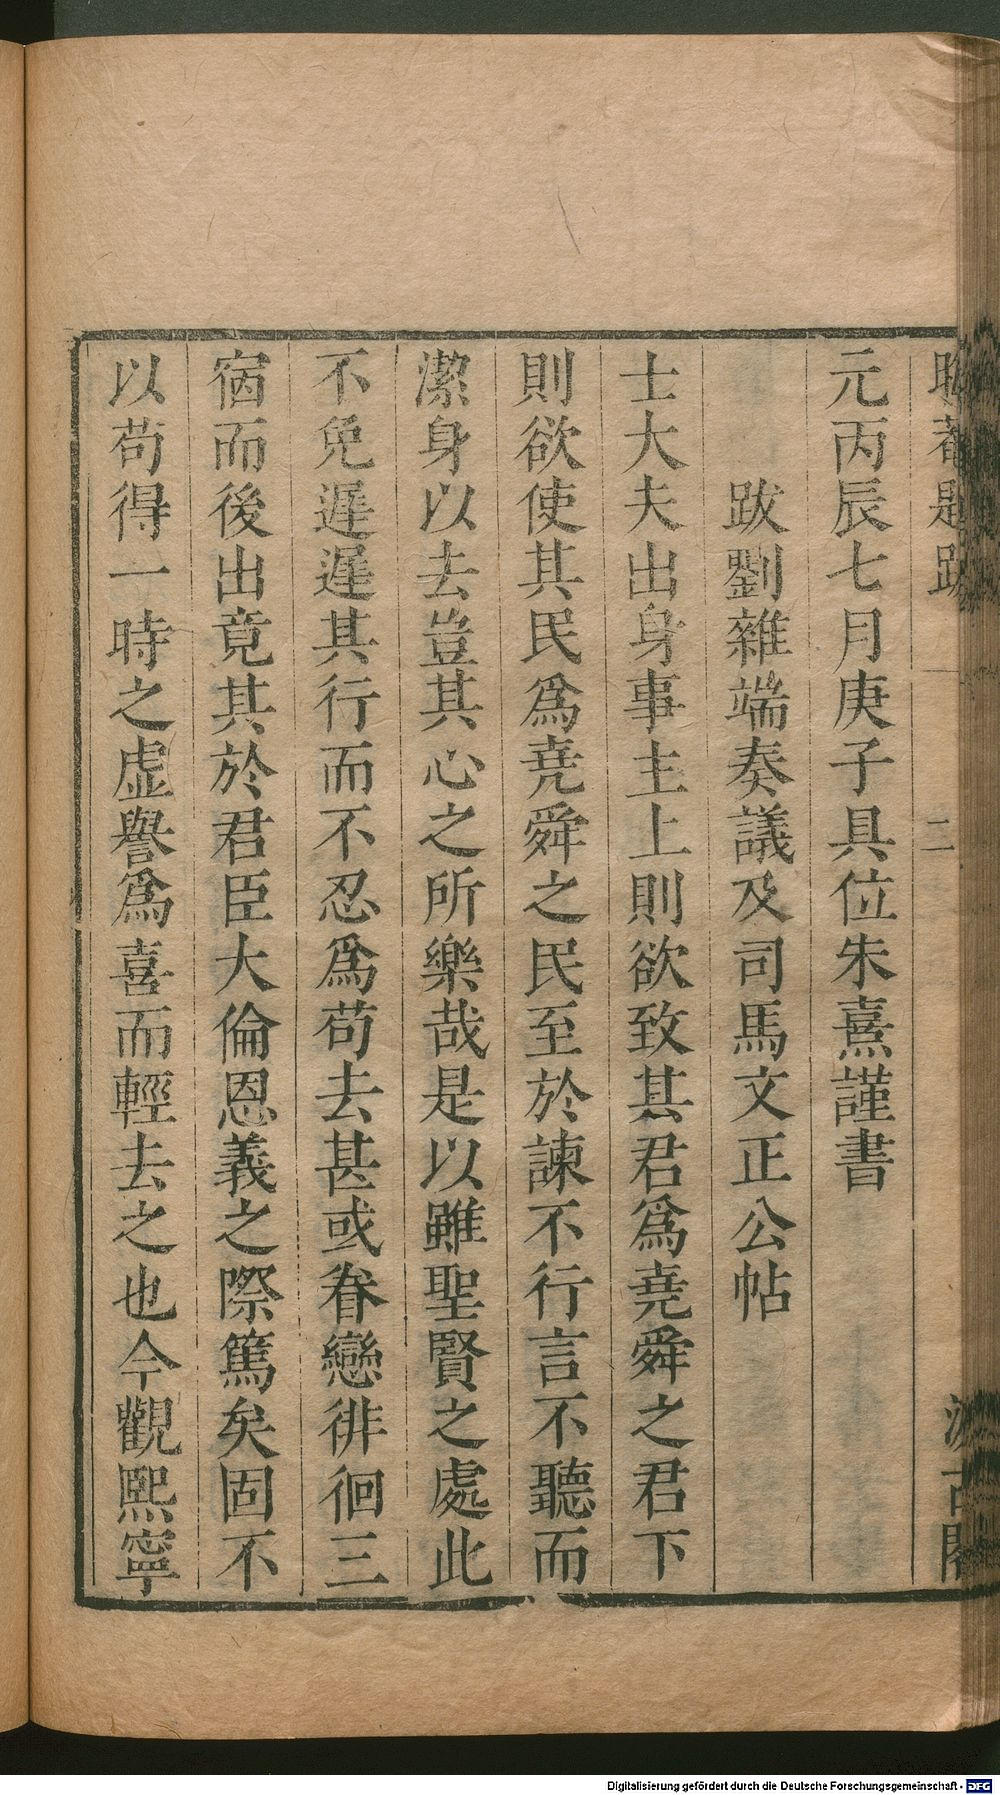 晦菴題跋 一 二 汲古閣
元丙辰七月庚子具位朱熹謹書
跋劉雜端奏議及司馬文正公帖
士大夫出身事主上則欲致其君爲堯舜之君下
則欲使其民爲堯舜之民至於諫不行言不聽而
潔身以去豈其心之所樂哉是以雖聖賢之處此
不免遲遲其行而不忍爲苟去甚或眷戀徘徊三
宿而後出竟其於君臣大倫恩義之際篤矣固不
以苟得一時之虛譽爲喜而輕去之也今觀熙寧
Digitalisierung gefördert durch die Deutsche Forschungsgemeinschaft - DFG